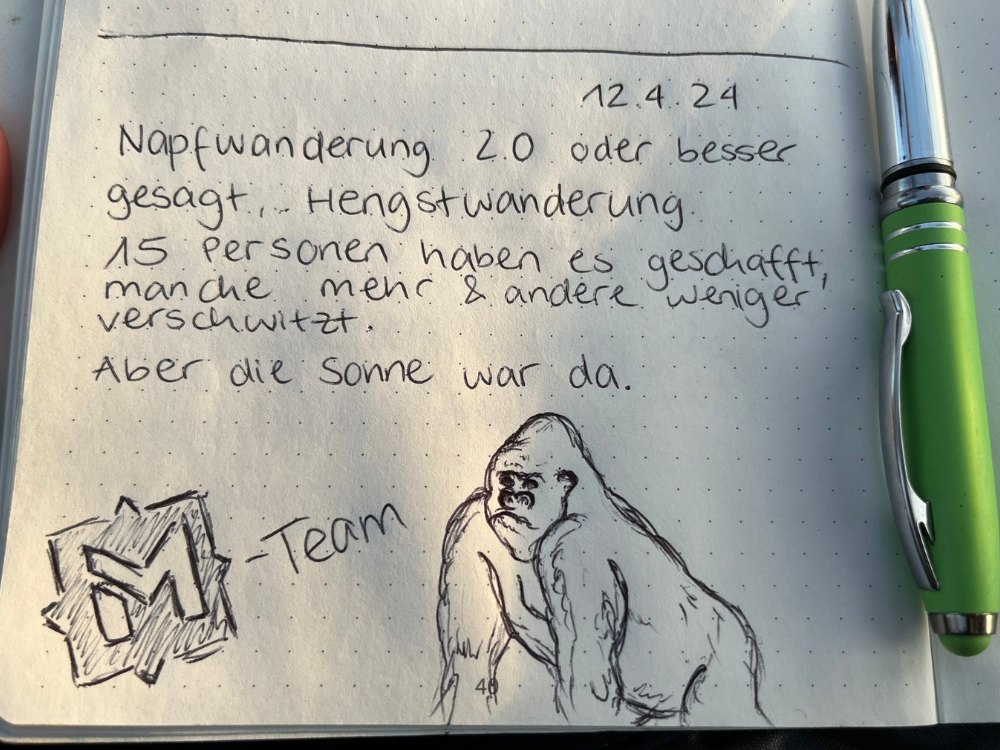 12.4.24
Napfwanderung 2.0 oder besser
gesagt... Hengstwanderung.
15 Personen haben es geschafft,
manche mehr & andere weniger
verschwitzt.
Aber die Sonne war da.
M-Team
40